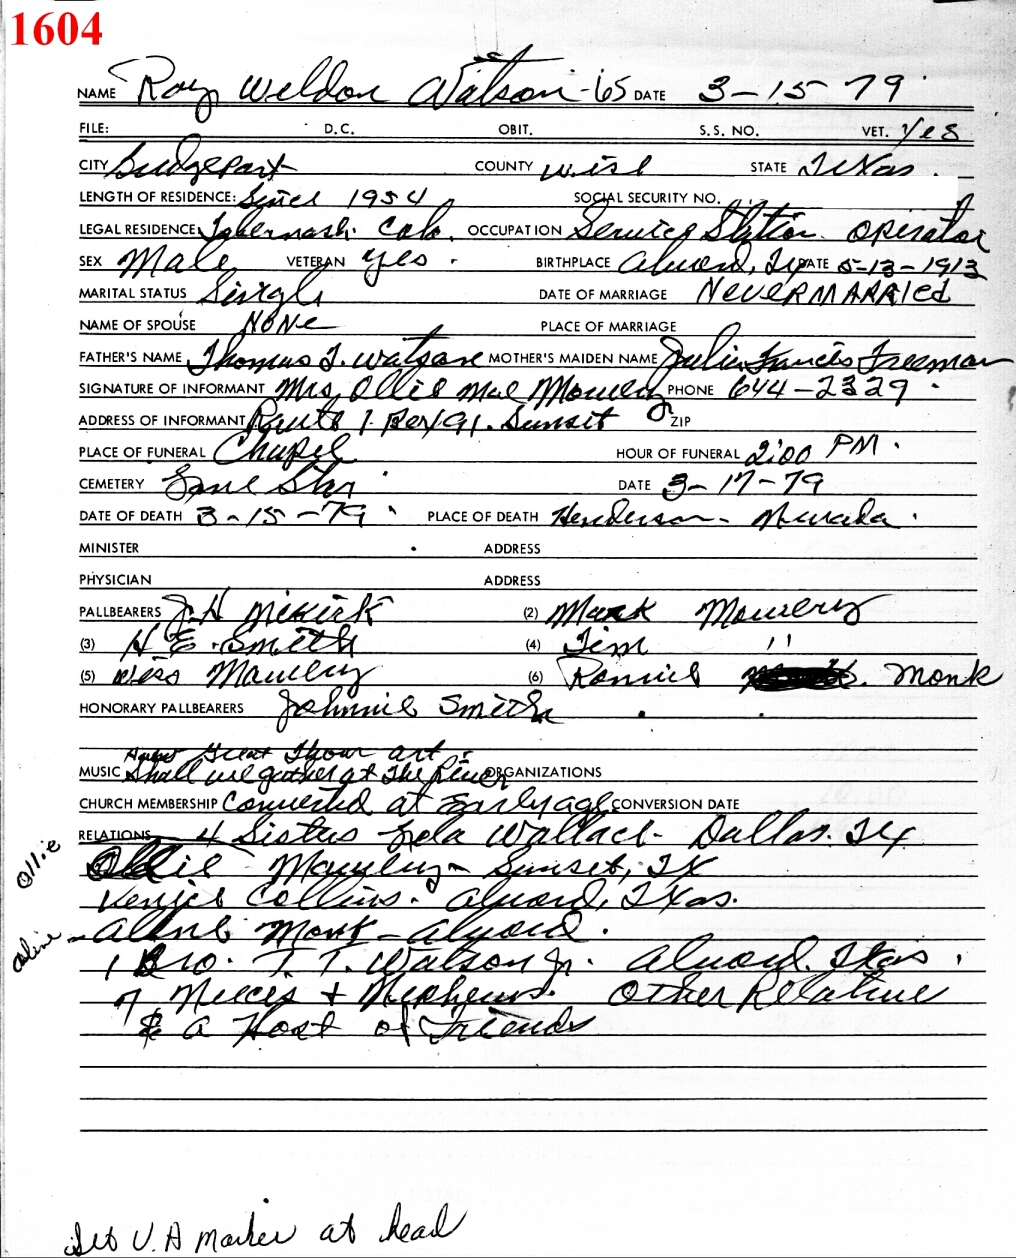 1604
NAME Roy Weldon Watson - 65 DATE 3-15-79
FILE: D.C. OBIT. S.S. NO. VET. Yes
CITY Bridgeport COUNTY Wise STATE Texas
LENGTH OF RESIDENCE: Since 1954 SOCIAL SECURITY NO.
LEGAL RESIDENCE: Tabernash Colo. OCCUPATION Service Station Operator
SEX Male VETERAN Yes BIRTHPLACE Alvord, Tx DATE 5-13-1913
MARITAL STATUS Single DATE OF MARRIAGE Never MARRied
NAME OF SPOUSE NONe PLACE OF MARRIAGE
FATHER'S NAME Thomas T. Watson MOTHER'S MAIDEN NAME Julia Francis Freeman
SIGNATURE OF INFORMANT Mrs Ollie Mae Mowery PHONE 644-2329
ADDRESS OF INFORMANT Route 1 Box 91. Sunset ZIP
PLACE OF FUNERAL Chapel HOUR OF FUNERAL 2:00 PM.
CEMETERY Lone Star DATE 3-17-79
DATE OF DEATH 3-15-79 PLACE OF DEATH Henderson - Nevada.
MINISTER ADDRESS
PHYSICIAN ADDRESS
PALLBEARERS J.H (2) Mark Mowery
(3) H.E. Smith (4) Tim "
(5) Wess Mowery (6) Ronnie Monk
HONORARY PALLBEARERS Johnnie Smith
How Great Thou art
MUSIC Shall we gather at The River ORGANIZATIONS
CHURCH MEMBERSHIP Converted at Early age CONVERSION DATE
RELATIONS 4 Sisters Lela Wallace - Dallas. Tex
Ollie
Ollie Mowery - Sunset, TX
Collins. Alvord, Texas.
Aline
- Allene Monk - Alvord.
1 Bro. T. T. Watson Jr. Alvord. Texas.
7 Nieces + Nephews. Other Relative
& a Host of Friends
Set V.A marker at head